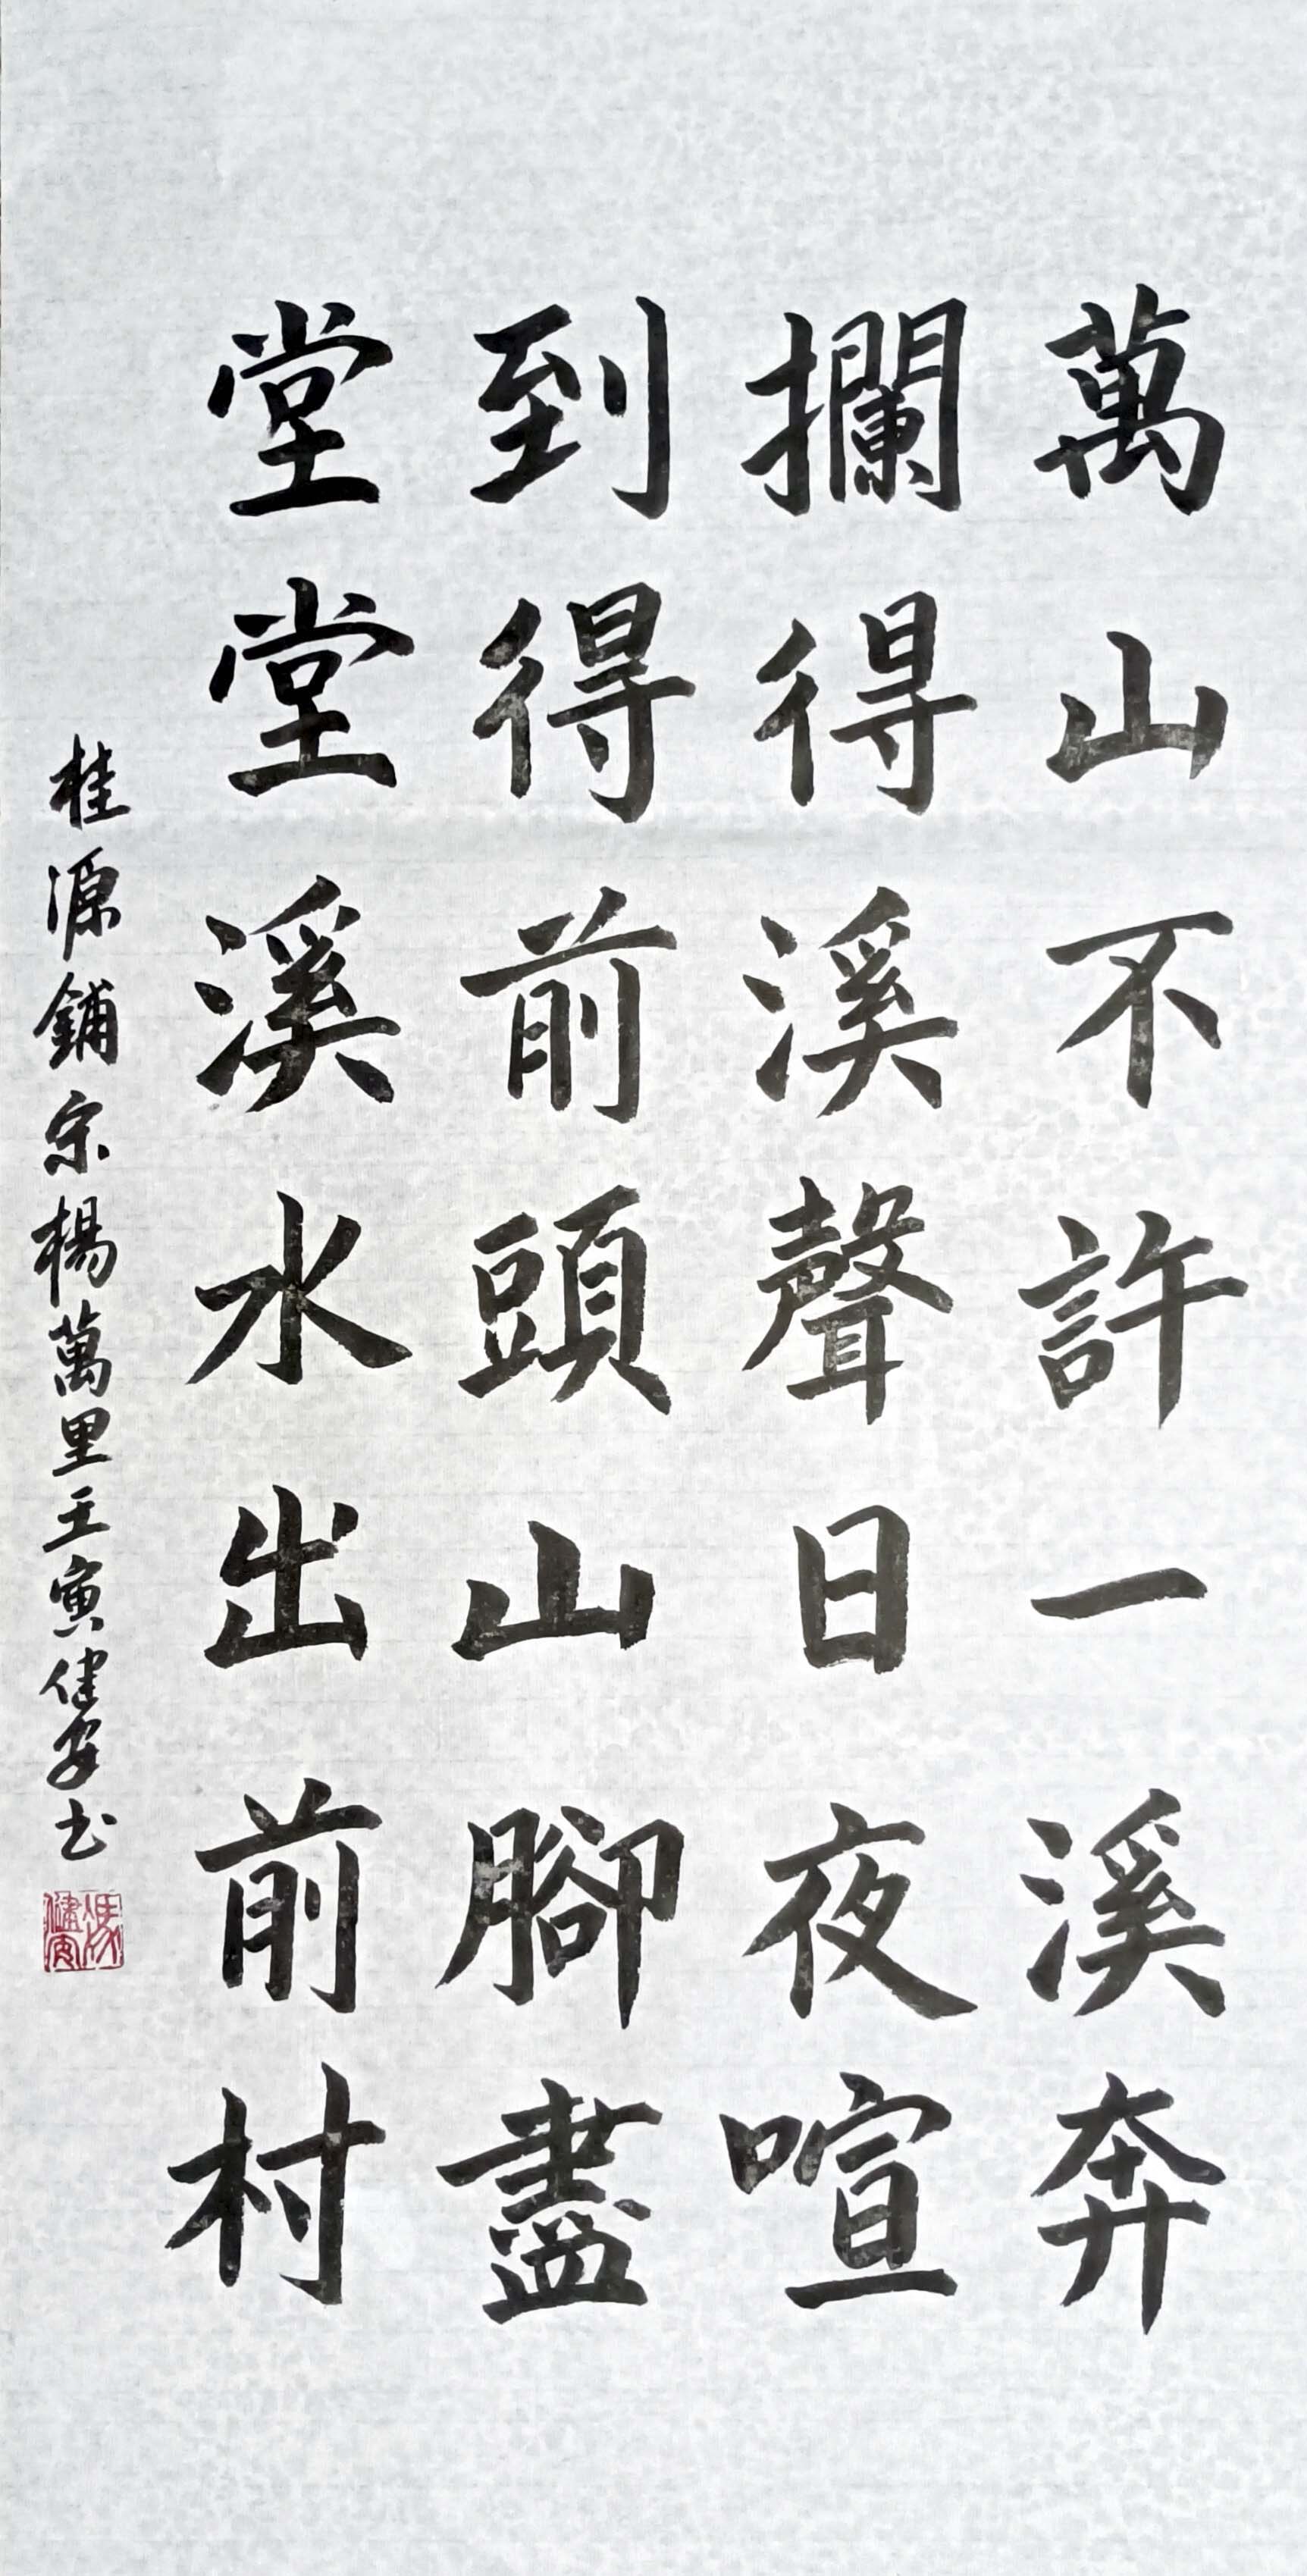 萬山不許一溪奔
攔得溪聲日夜喧
到得前頭山腳盡
堂堂溪水出前村
桂源鋪宋楊萬里壬寅健安书
馮健安